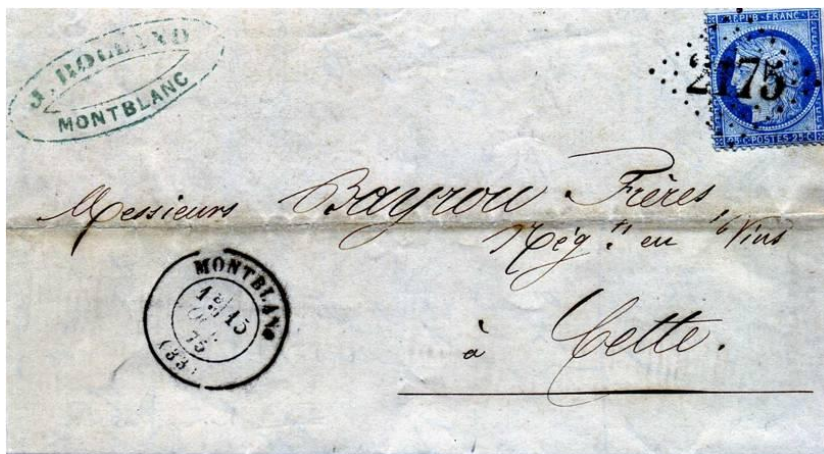 J. ROLLAND
MONTBLANC
REPUB. FRANC.
2175
25 C. POSTES 25 C.
Messieurs Bayrou Frères
Nég.ts en Vins
à Cette.
MONTBLANC
15
75
(33)